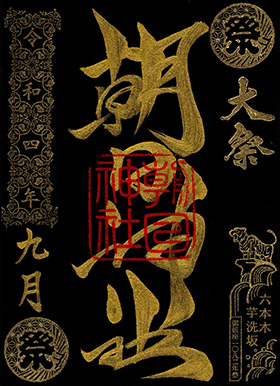 祭
大祭
六本木
芋洗坂
朝日神社
朝日
神社
令和四年
九月
祭